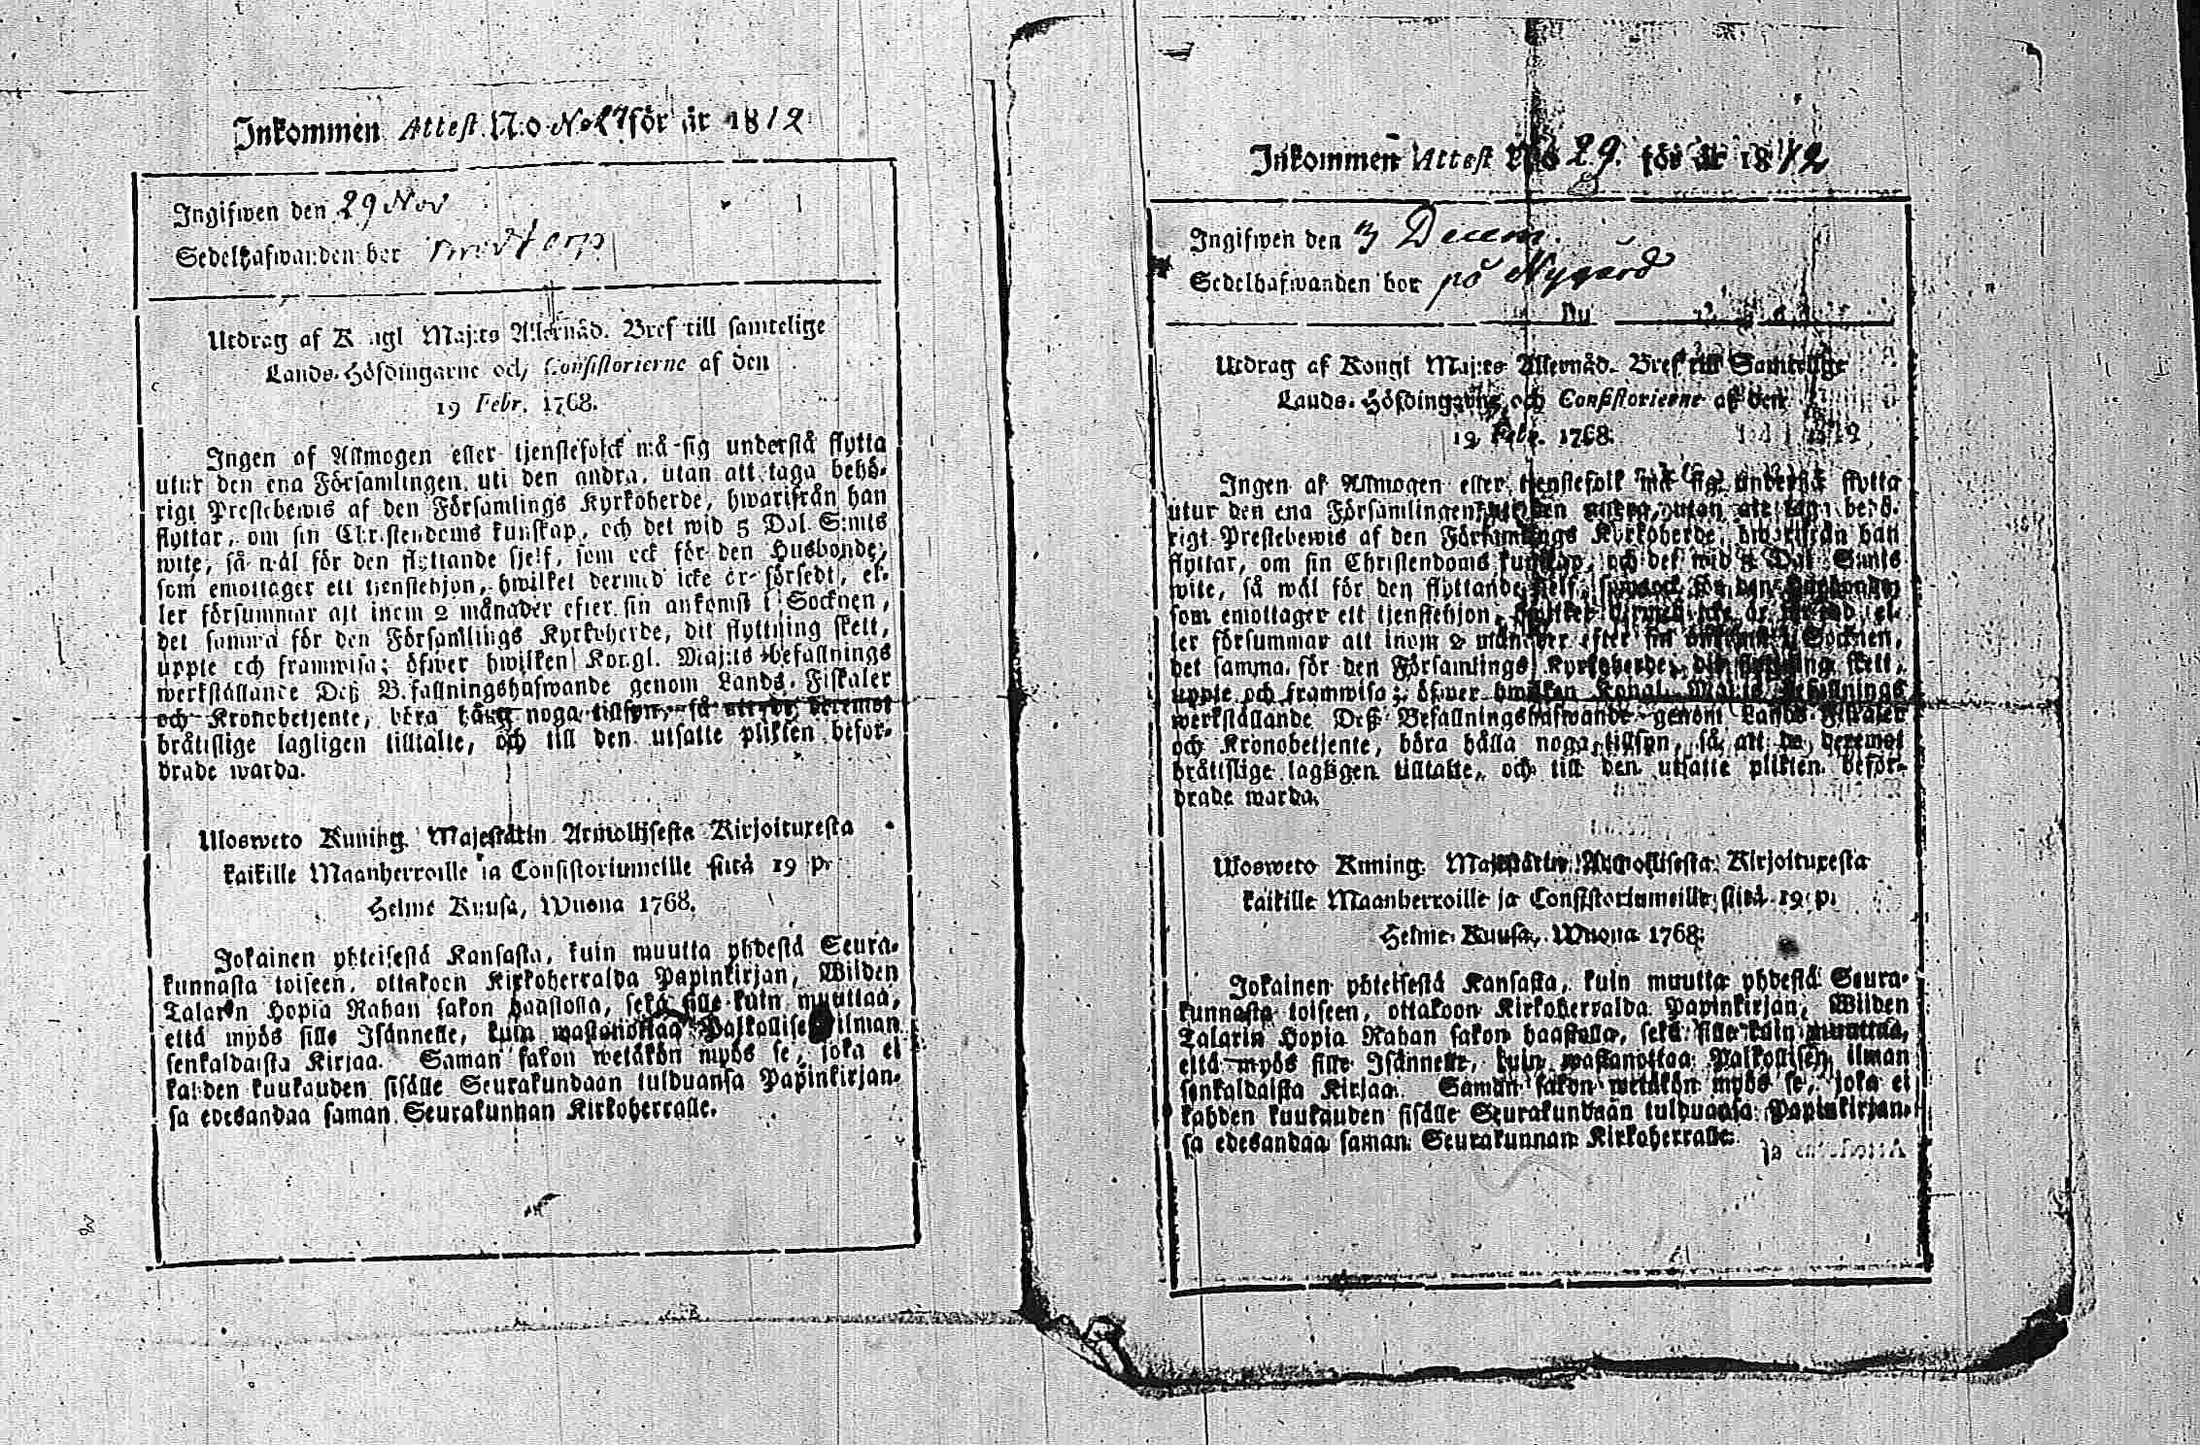 Inkommen Attest N:o No 27 för år 1812
Ingifwen den 29 Nov
Sedelhafwanden bor
Utdrag af Kongl Maj:ts Allernåd. Bref till samtelige
Lands-Höfdingarne och Consistorierne af den
19 Febr. 1768.
Ingen af Allmogen eller tjenstefolck må sig understå flytta
utur den ena Församlingen uti den andra, utan att taga behö-
rigt Prestebewis af den Församlings Kyrkoherde, hwarifrån han
flyttar, om sin Christendoms kunskap, och det wid 5 Dal. S:mts
wite, så wäl för den flyttande sjelf, som ock för den Husbonde,
som emottager ett tjenstehjon, hwilket dermed icke är försedt, el-
ler försummar att inom 2 månader efter sin ankomst i Socknen,
det samma för den Församlings Kyrkoherde, dit flyttning skett,
uppte och framwisa; öfwer hwilken Kongl. Maj:ts befallnings
werkställande Deß Befallningshafwande genom Lands-Fiskaler
och Kronobetjente, böra hålla noga tillsyn, så att de deremot
bråtislige lagligen tilltalte, och till den utsatte plikten befor-
drade warda.
Ulosweto Kuning. Majestätin Armollisesta Kirjoituxesta
kaikille Maanherroille ja Consistoriumeille siitä 19 p.
Helme Kuusa, Wuona 1768.
Jokainen yhteisestä Kansasta, kuin muutta yhdestä Seura-
kunnasta toiseen, ottakoon Kirkoherralda Papinkirjan, Wiiden
Talarin Hopia Rahan sakon haastolla, sekä sille kuin muuttaa,
että myös sille Isännelle, kuin wastanottaa Palkollisen ilman
senkaldaista Kirjaa. Saman sakon wetäkön myös se, joka ei
kahden kuukauden sisälle Seurakundaan tulduansa Papinkirjan-
sa edesandaa saman Seurakunnan Kirkoherralle.
Inkommen Attest N:o 29. för år 1812
Ingifwen den 3 Decem.
Sedelhafwanden bor på Nygård
Utdrag af Kongl Maj:ts Allernåd. Bref till Samtelige
Lands-Höfdingarne och Consistorierne af den
19 Febr. 1768.
Ingen af Allmogen eller tjenstefolk må sig understå flytta
utur den ena Församlingen uti den andra, utan att taga behö-
rigt Prestebewis af den Församlings Kyrkoherde, hwarifrån han
flyttar, om sin Christendoms kunskap, och det wid 5 Dal. S:mts
wite, så wäl för den flyttande sjelf, som ock för den Husbonden
som emottager ett tjenstehjon, hwilket dermed icke är försedt, el-
ler försummar att inom 2 månader efter sin ankomst i Socknen,
det samma för den Församlings Kyrkoherde, dit flyttning skett,
uppte och framwisa; öfwer hwilken Kongl. Maj:ts befallnings
werkställande Deß Befallningshafwande genom Lands-Fiskaler
och Kronobetjente, böra hålla noga tillsyn, så att de deremot
bråtislige lagligen tilltalte, och till den utsatte plikten befor-
drade warda.
Ulosweto Kuning. Majestätin Armollisesta Kirjoituxesta
kaikille Maanherroille ja Consistoriumeille siitä 19 p.
Helme Kuusa, Wuona 1768.
Jokainen yhteisestä Kansasta, kuin muutta yhdestä Seura-
kunnasta toiseen, ottakoon Kirkoherralda Papinkirjan, Wiiden
Talarin Hopia Rahan sakon haastolla, sekä sille kuin muuttaa,
että myös sille Isännelle, kuin wastanottaa Palkollisen ilman
senkaldaista Kirjaa. Saman sakon wetäkön myös se, joka ei
kahden kuukauden sisälle Seurakundaan tulduansa Papinkirjan-
sa edesandaa saman Seurakunnan Kirkoherralle.